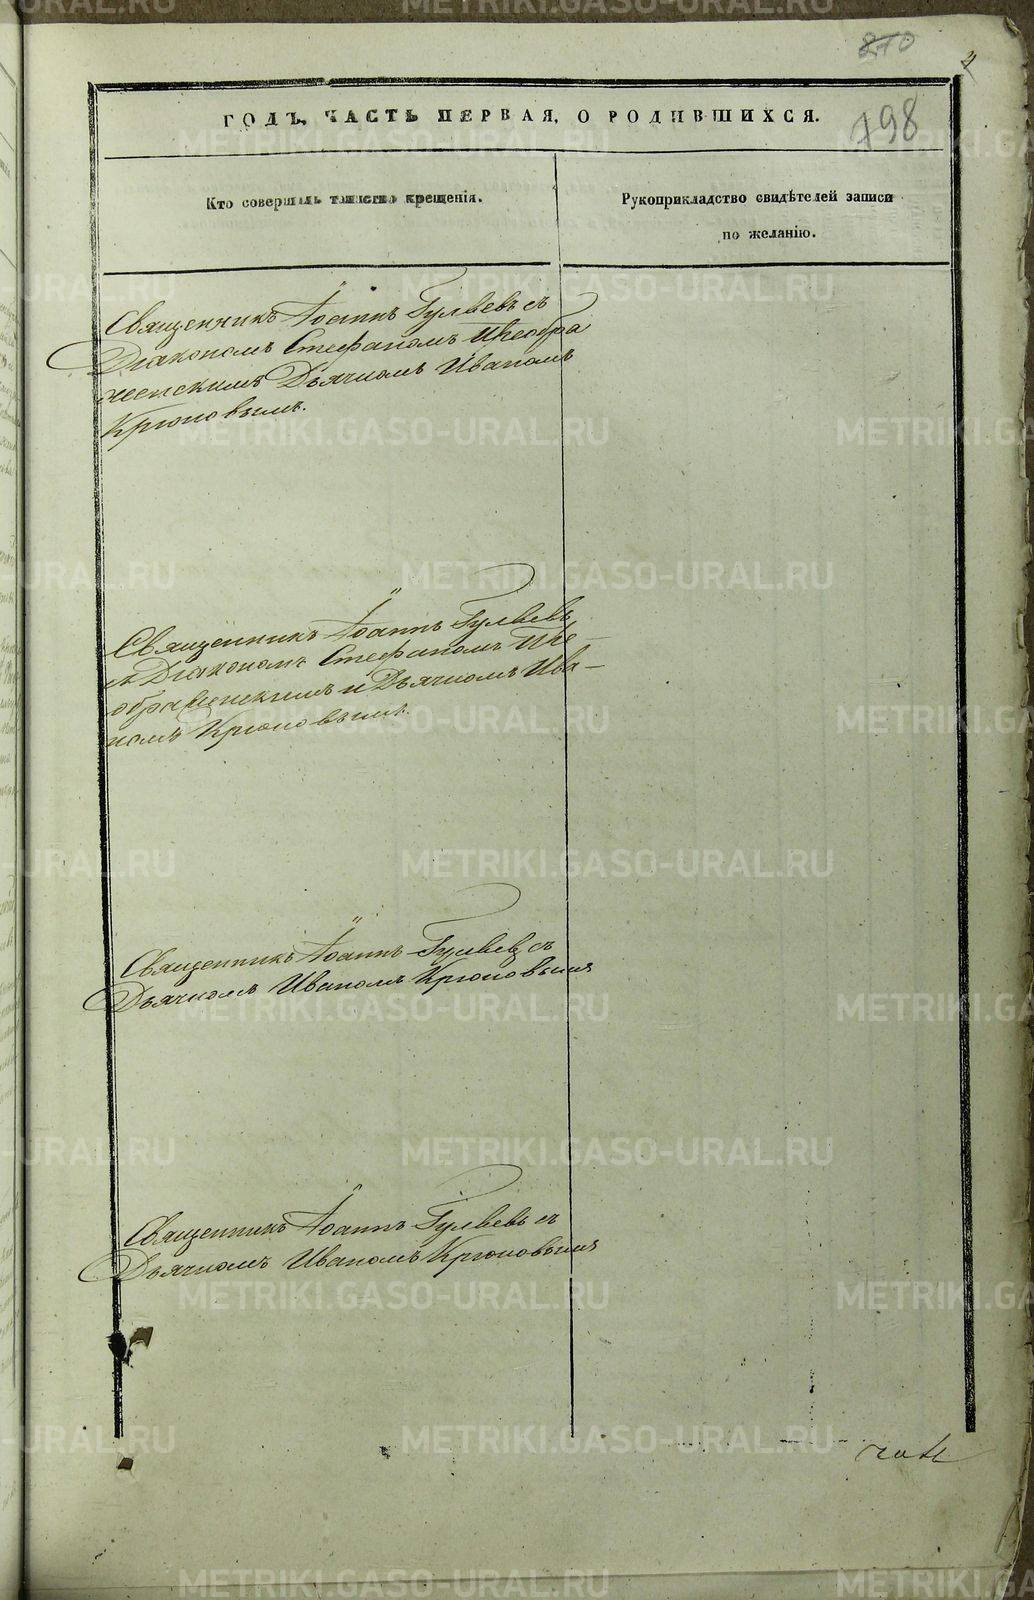 210
4
798
ГОДЪ, ЧАСТЬ ПЕРВАЯ, О РОДИВШИХСЯ.
Кто совершалъ таинство крещенія.
Рукоприкладство свидѣтелей записи
по желанію.
Священникъ Іоаннъ Гуляевъ съ
Діакономъ Стефаномъ Преобра
женскимъ Дьячкомъ Иваномъ
Крюковымъ.
Священникъ Іоаннъ Гуляевъ
съ Діакономъ Стефаномъ Пре
ображенскимъ и Дьячкомъ Ива–
номъ Крюковымъ.
Священникъ Іоаннъ Гуляевъ съ
Дьячкомъ Иваномъ Крюковымъ
Священникъ Іоаннъ Гуляевъ съ
Дьячкомъ Иваномъ Крюковымъ
METRIKI.GASO-URAL.RU